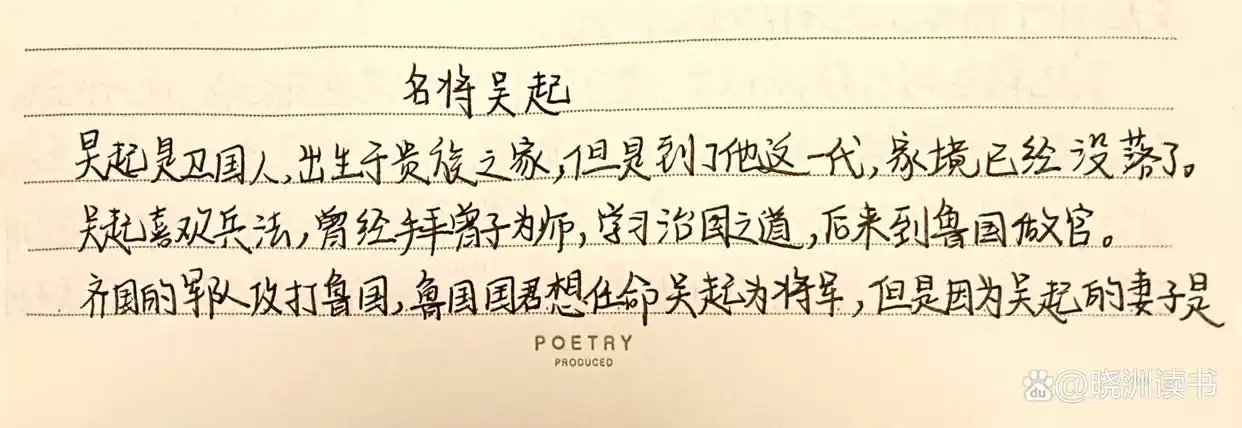 名将吴起
吴起是卫国人,出生于贵族之家,但是到了他这一代,家境已经没落了。
吴起喜欢兵法,曾经拜曾子为师,学习治国之道,后来到鲁国做官。
齐国的军队攻打鲁国,鲁国国君想任命吴起为将军,但是因为吴起的妻子是
POETRY
PRODUCED
du @晓洲读书